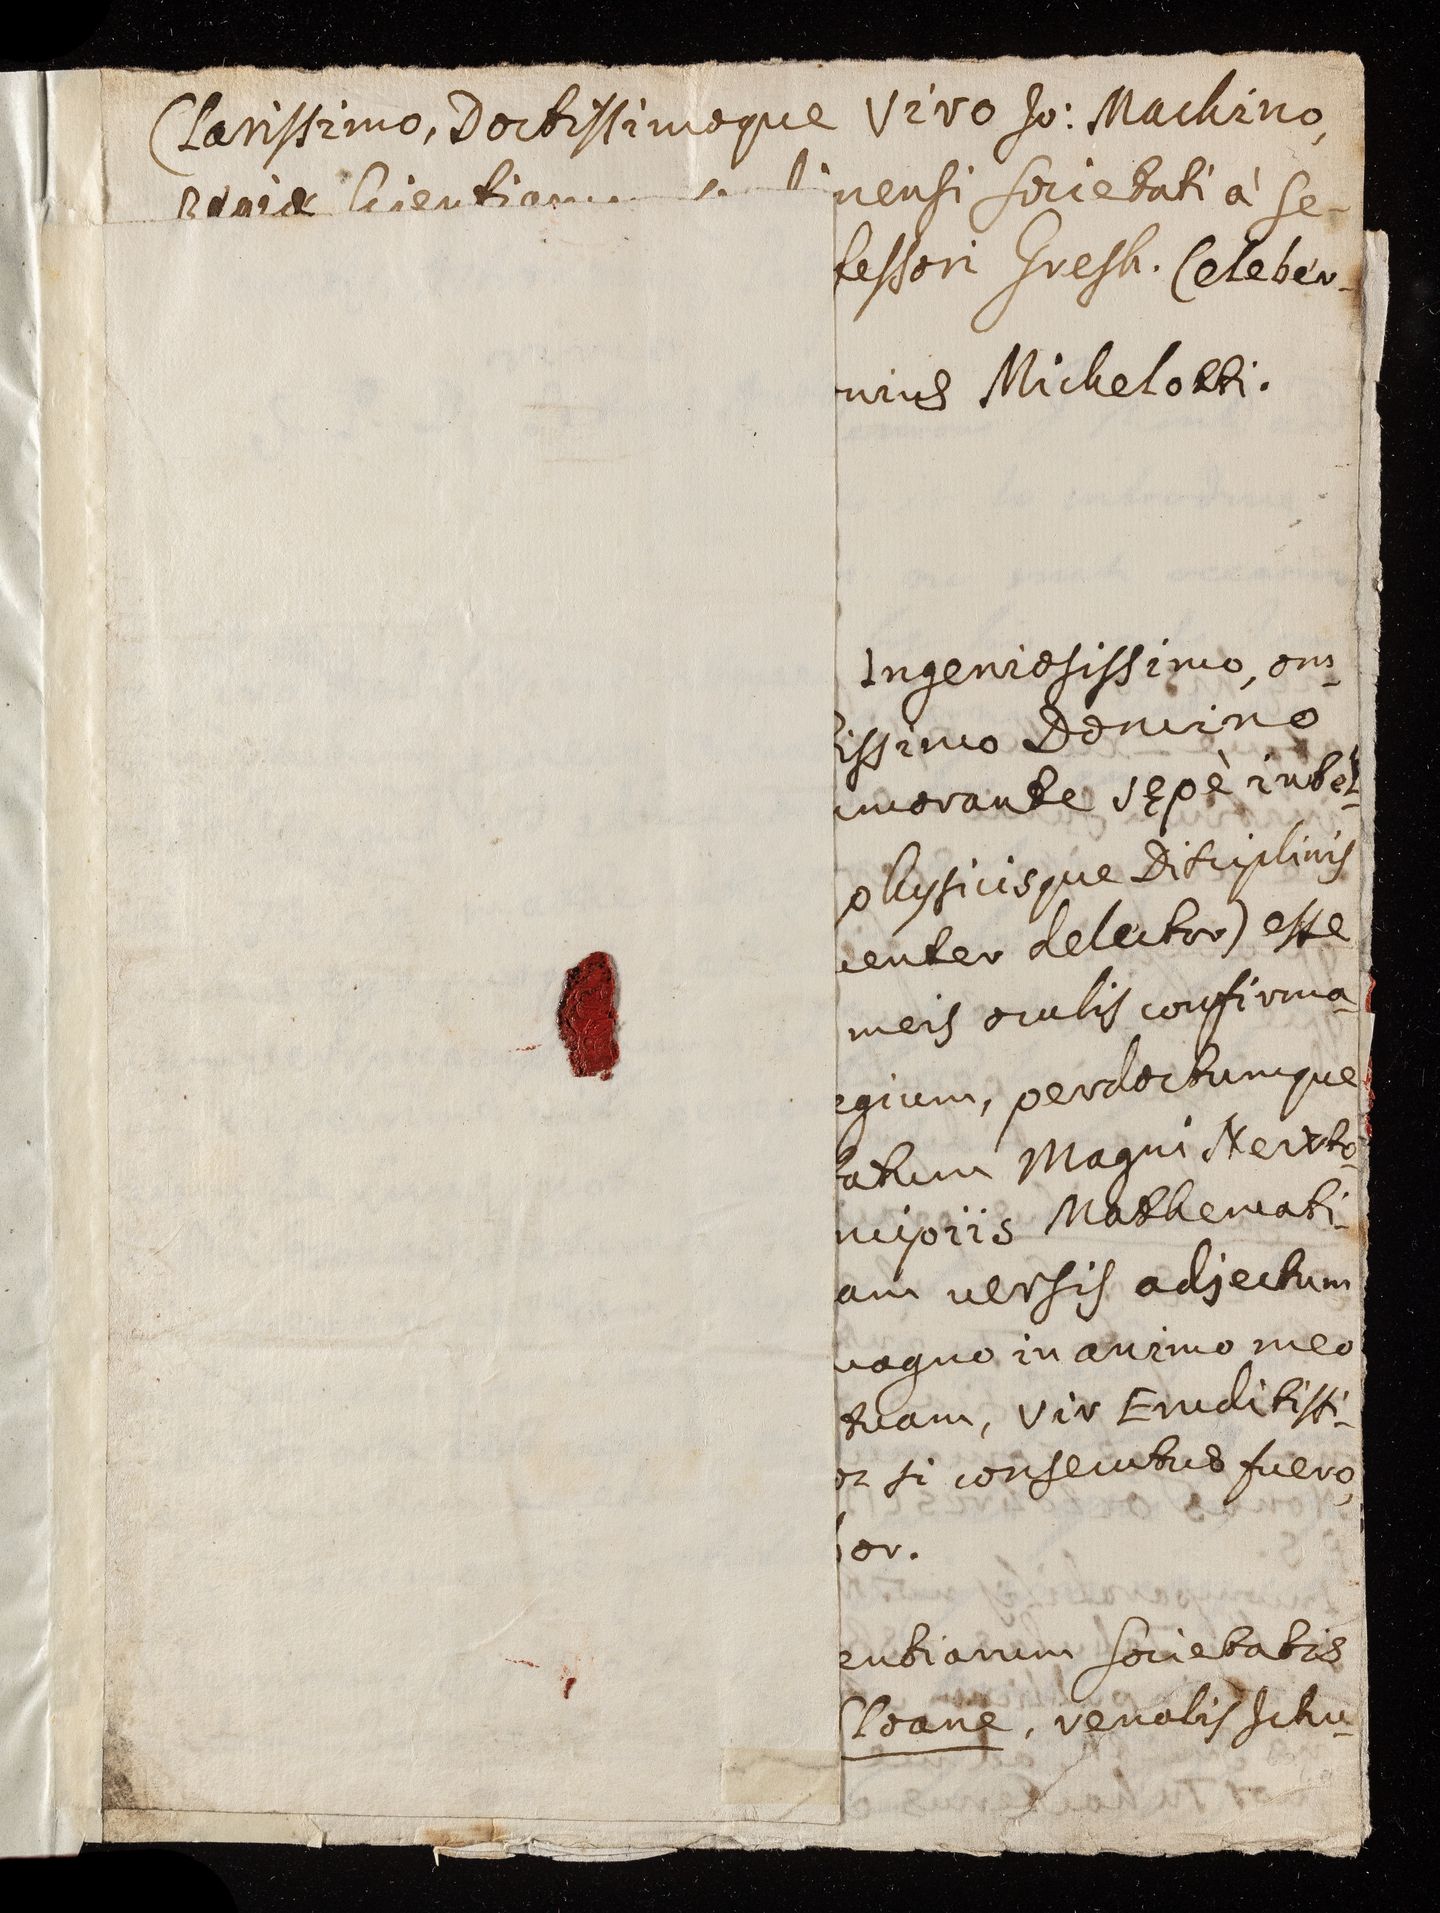 Clarissimo, Doctissimoque Viro Jo: Machino,
Regiæ Scientiarum nensi Societati à Se-
fessori Gresh. Celeber-
nius Michelotti.
Ingeniosissimo, om-
issimo Domino
morante sępè intel-
physicisque Disciplinis
enter delector) esse
meis oculis confirma-
egium, perdoctumque
tatum Magni Newto-
ncipiis Mathemati-
am versis adjectum
magno in animo meo
tuam, Vir Eruditissi-
si consecutus fuero,
or.
entiarum Societatis
Sloane, venalis Schu-